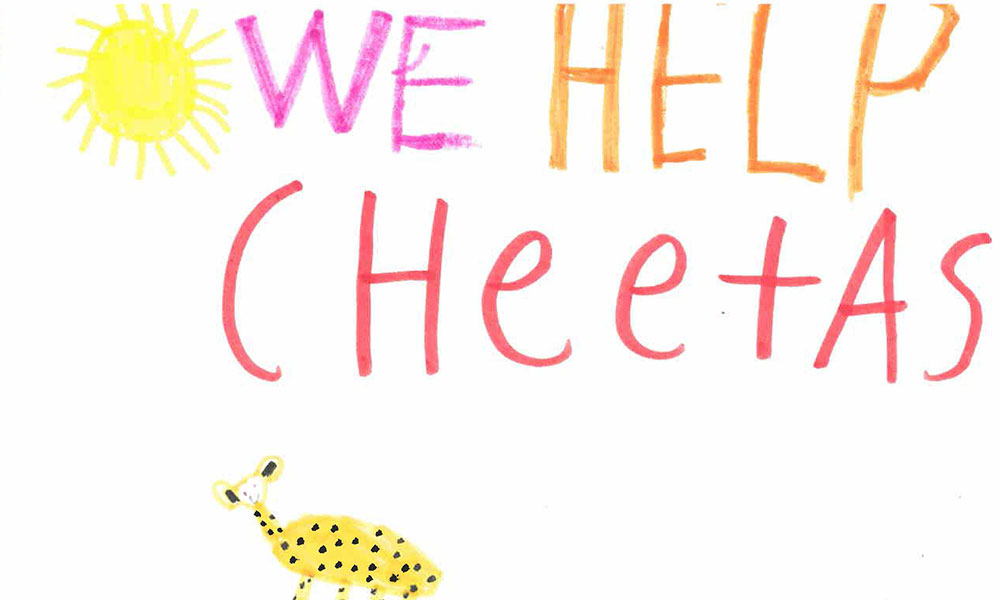 WE HELP
CHeetAS